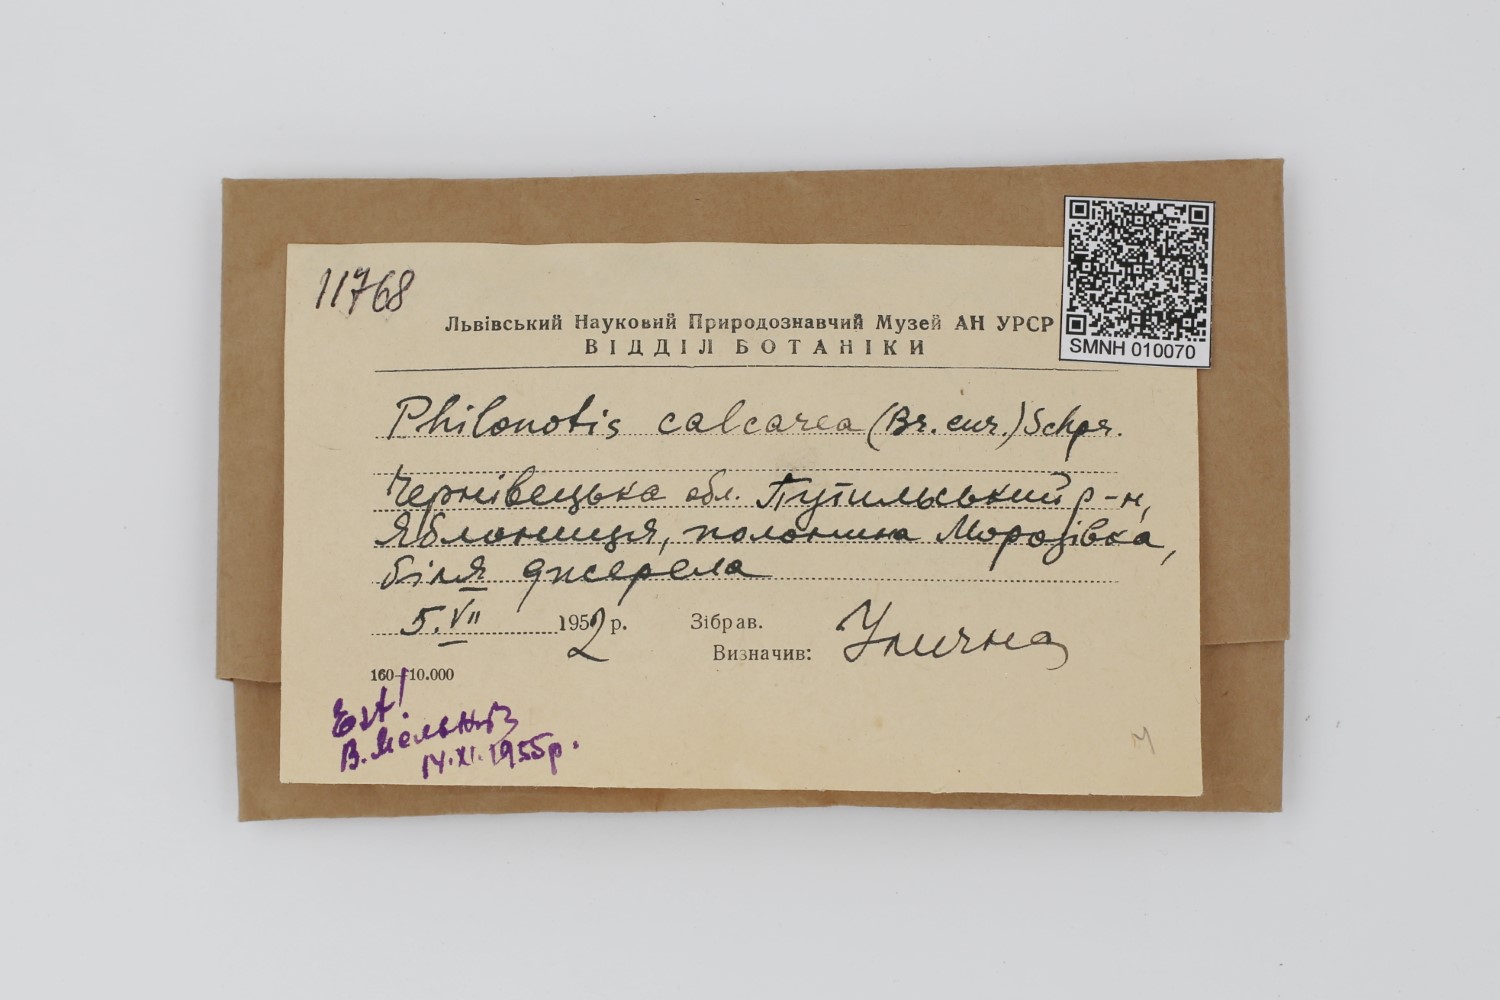 11768
Львівський Науковий Природознавчий Музей АН УРСР
ВІДДІЛ БОТАНІКИ
SMNH 010070
Philonotis calcarea (Br. eur.) Schpr.
Чернівецька обл. Путильський р-н,
Яблониця, полонина Морозівка,
біля джерела
5.VII 1952 р. Зібрав.
Визначив: Улична
160—10.000
Ext!
В. Мельник
14.XI.1955р.